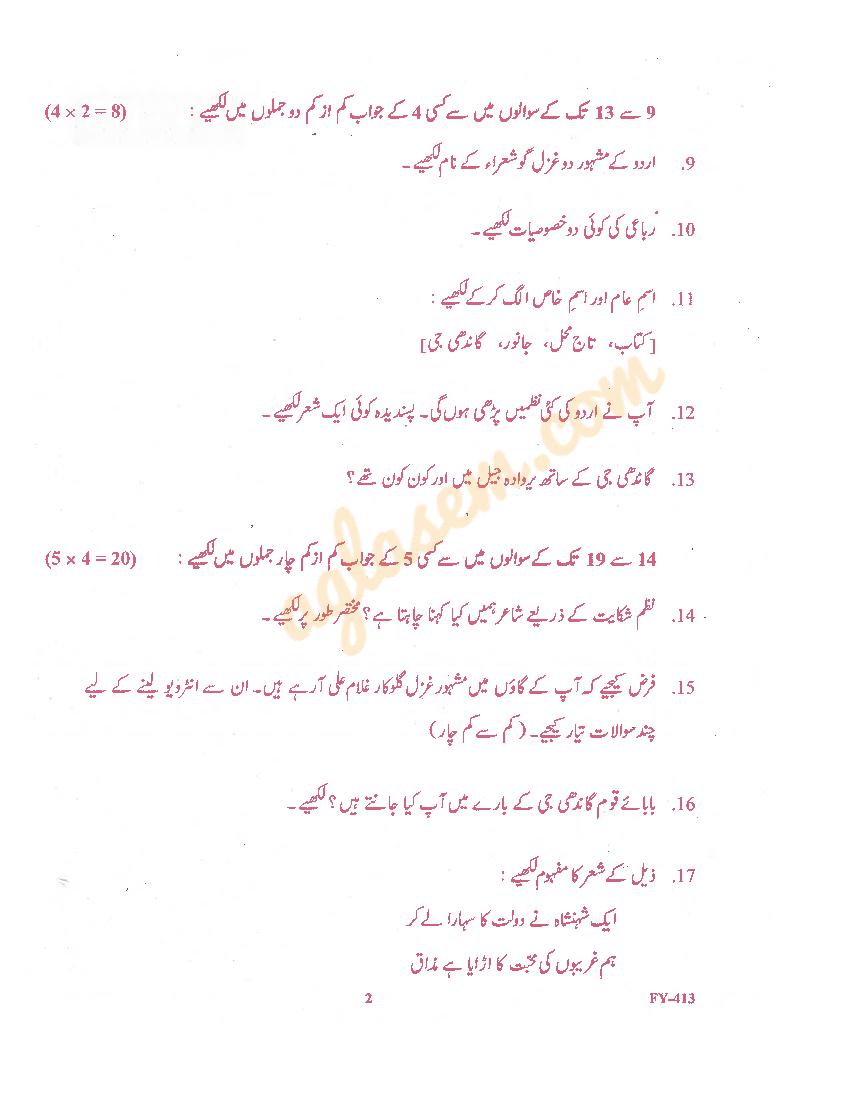 9 سے 13 تک کے سوالوں میں سے کسی 4 کے جواب کم از کم دو جملوں میں لکھیے : (4 × 2 = 8)
9. اردو کے مشہور دو غزل گو شعراء کے نام لکھیے ۔
10. رُباعی کی کوئی دو خصوصیات لکھیے ۔
11. اسمِ عام اور اسمِ خاص الگ کر کے لکھیے :
[کتاب، تاج محل، جانور، گاندھی جی]
12. آپ نے اردو کی کئی نظمیں پڑھی ہوں گی۔ پسندیدہ کوئی ایک شعر لکھیے ۔
13. گاندھی جی کے ساتھ یرواده جیل میں اور کون کون تھے ؟
14 سے 19 تک کے سوالوں میں سے کسی 5 کے جواب کم از کم چار جملوں میں لکھیے : (5 × 4 = 20)
14. نظم شکایت کے ذریعے شاعر ہمیں کیا کہنا چاہتا ہے ؟ مختصر طور پر لکھیے ۔
15. فرض کیجیے کہ آپ کے گاؤں میں مشہور غزل گلوکار غلام علی آ رہے ہیں۔ ان سے انٹرویو لینے کے لیے
چند سوالات تیار کیجیے۔ (کم سے کم چار)
16. بابائے قوم گاندھی جی کے بارے میں آپ کیا جانتے ہیں ؟ لکھیے ۔
17. ذیل کے شعر کا مفہوم لکھیے :
ایک شہنشاہ نے دولت کا سہارا لے کر
ہم غریبوں کی محبّت کا اڑایا ہے مذاق
FY-413 2
aglasem.com